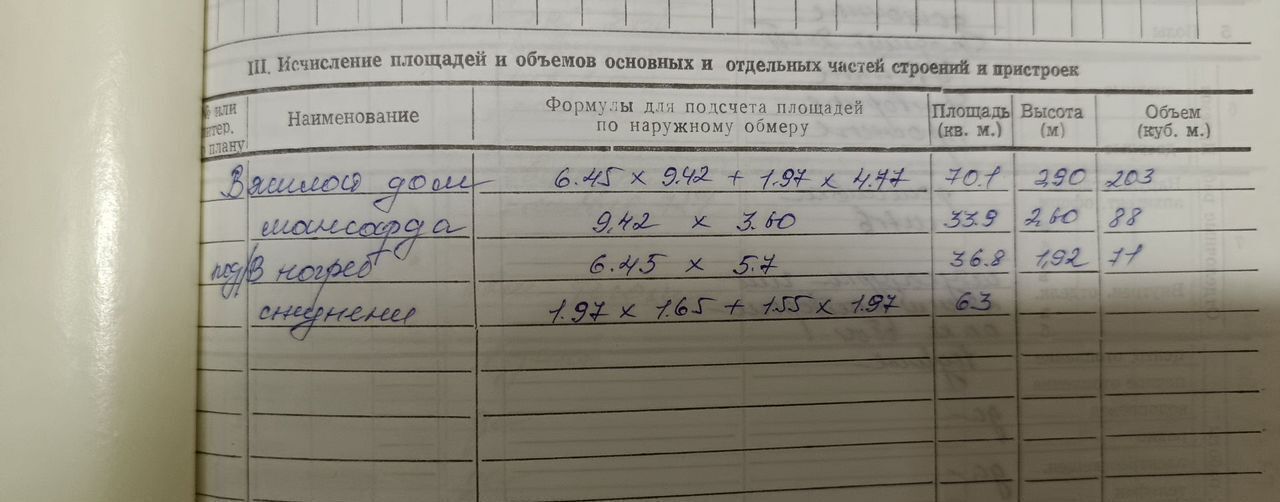 III. Исчисление площадей и объемов основных и отдельных частей строений и пристроек
№ или литер. по плану Наименование Формулы для подсчета площадей по наружному обмеру Площадь (кв. м.) Высота (м) Объем (куб. м.)
В жилой дом 6.45 x 9.42 + 1.97 x 4.77 70.1 2,90 203
мансарда 9,42 x 3.60 33.9 2,60 88
под/В погреб 6.45 x 5.7 36.8 1,92 71
1.97 x 1.65 + 1.55 x 1.97 6.3